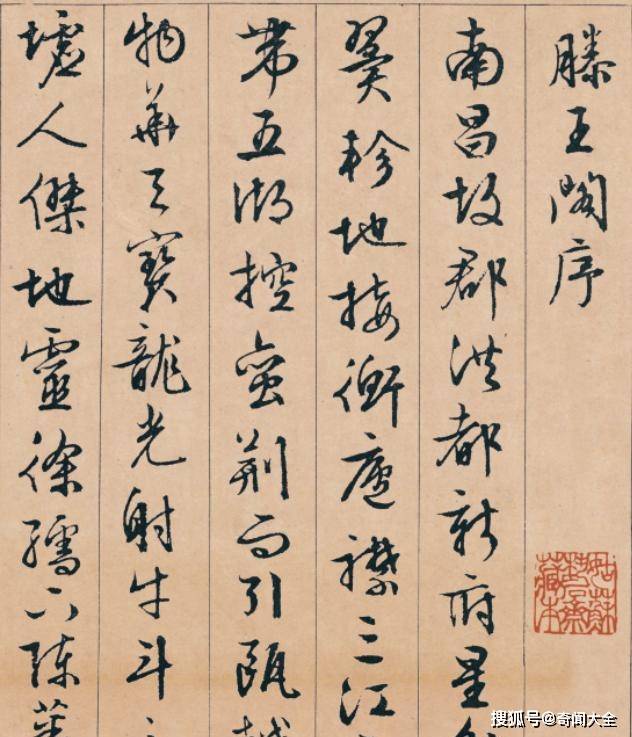 滕王阁序
南昌故郡洪都新府星
翼轸地接衡庐襟三江
带五湖控蛮荆而引瓯越
物华天宝龙光射牛斗之
墟人杰地灵徐孺下陈蕃
搜狐号@奇闻大全